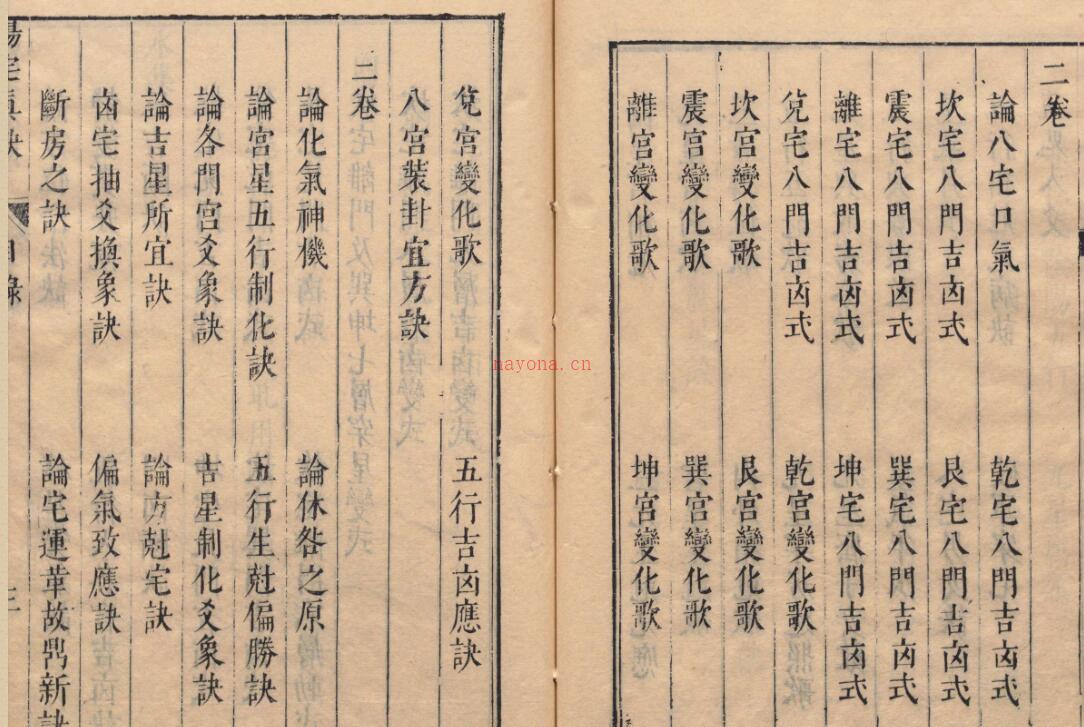 二卷
論八宅口氣 乾宅八門吉凶式
坎宅八門吉凶式 艮宅八門吉凶式
震宅八門吉凶式 巽宅八門吉凶式
離宅八門吉凶式 坤宅八門吉凶式
兌宅八門吉凶式 乾宮變化歌
坎宮變化歌 艮宮變化歌
震宮變化歌 巽宮變化歌
離宮變化歌 坤宮變化歌
兌宮變化歌 五行吉凶應訣
八宮裝封宜方訣
二卷
論化氣神機 論休咎之原
論宮星五行制化訣 五行生尅偏勝訣
論各門宮爻象訣 吉星制化爻象訣
論吉星所宜訣 論方尅宅訣
凶宅抽爻換象訣 偏氣致應訣
斷房之訣 論宅運革故鼎新訣
目錄
nayona.cn